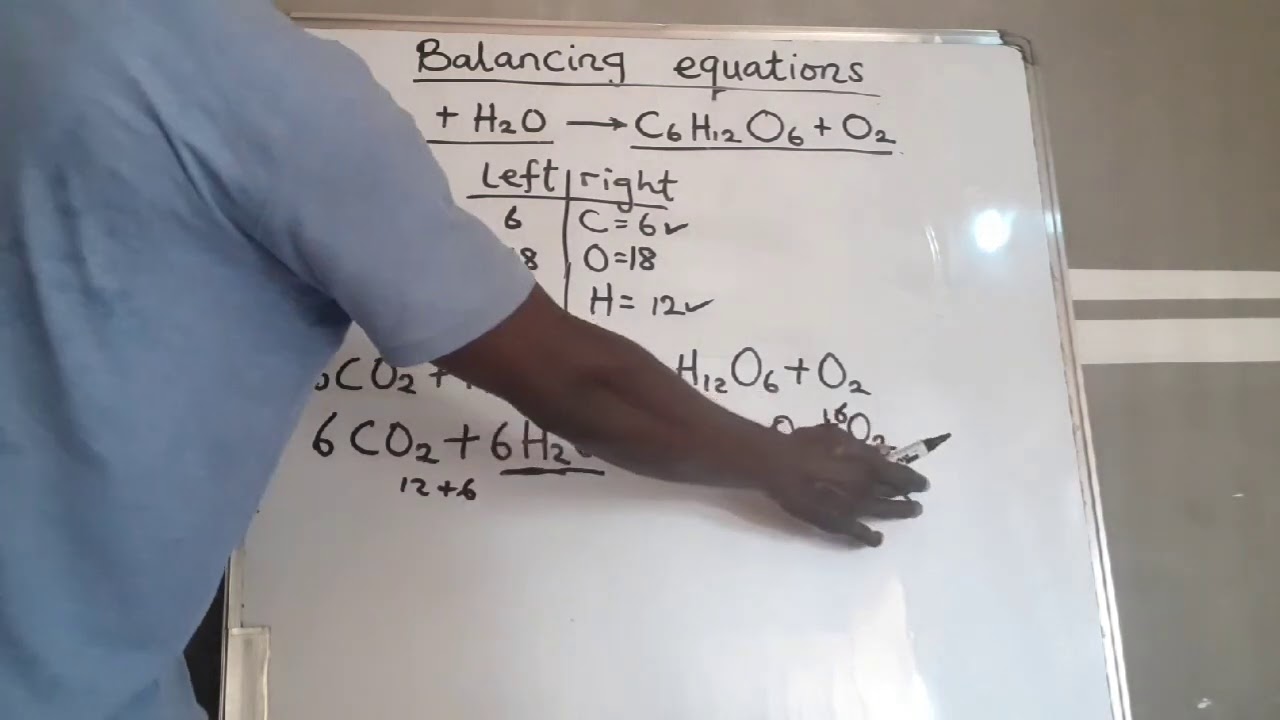 Balancing equations
+ H₂O → C₆H₁₂O₆ + O₂
Left right
6 C = 6 ✓
18 O = 18
H = 12 ✓
CO₂ + H₁₂O₆ + O₂
6CO₂ + 6H₂ O₂
12 + 6